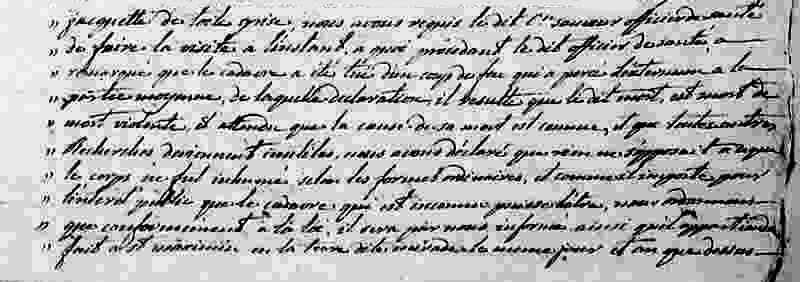 " jacquette de toile grise, nous avons requis le dit Cen sauveur officier de santé
" de faire la visite a l'instant, a quoi procedant le dit officier de sante, a
" remarqué que le cadavre a été tué d'un coup de feu qui a percé le sternum a la
" partie moyenne, de laquelle declaration, il resulte que le dit mort, est mort de
" mort violente, et attendu que la cause de sa mort est connue, et que toutes autres
" Recherches deviennent inutiles, nous avons déclaré que rien ne s'opposait a ce que
" le corps ne fut inhumé selon les formes ordinaires, et comme il importe pour
" l'intérêt public que le cadavre qui est inconnu puisse être, nous ordonnons
" que conformement à la loi, il sera par nous informé ainsi qu'il appartiendra
" fait a St maximin en la de la le meme jour et an que dessus